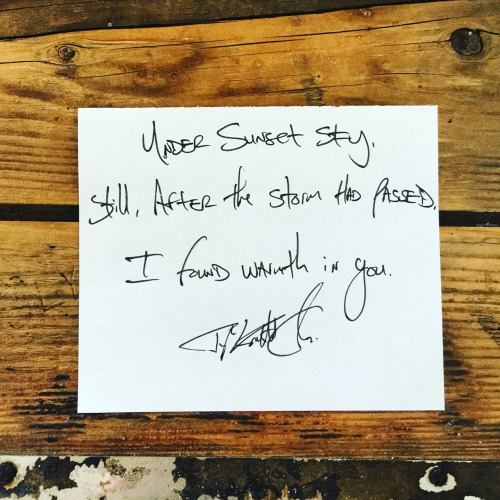 UNDER SUNSET SKY,
Still, AFTER the storm HAD PASSED,
I found warmth in you.